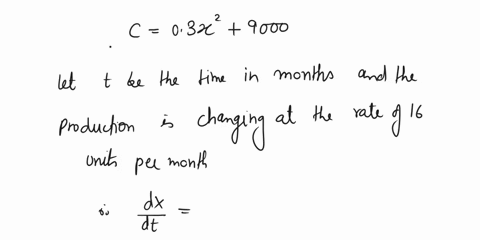 C = 0.3x² + 9000
let t be the time in months and the
production is changing at the rate of 16
units per month
∴ dx/dt =